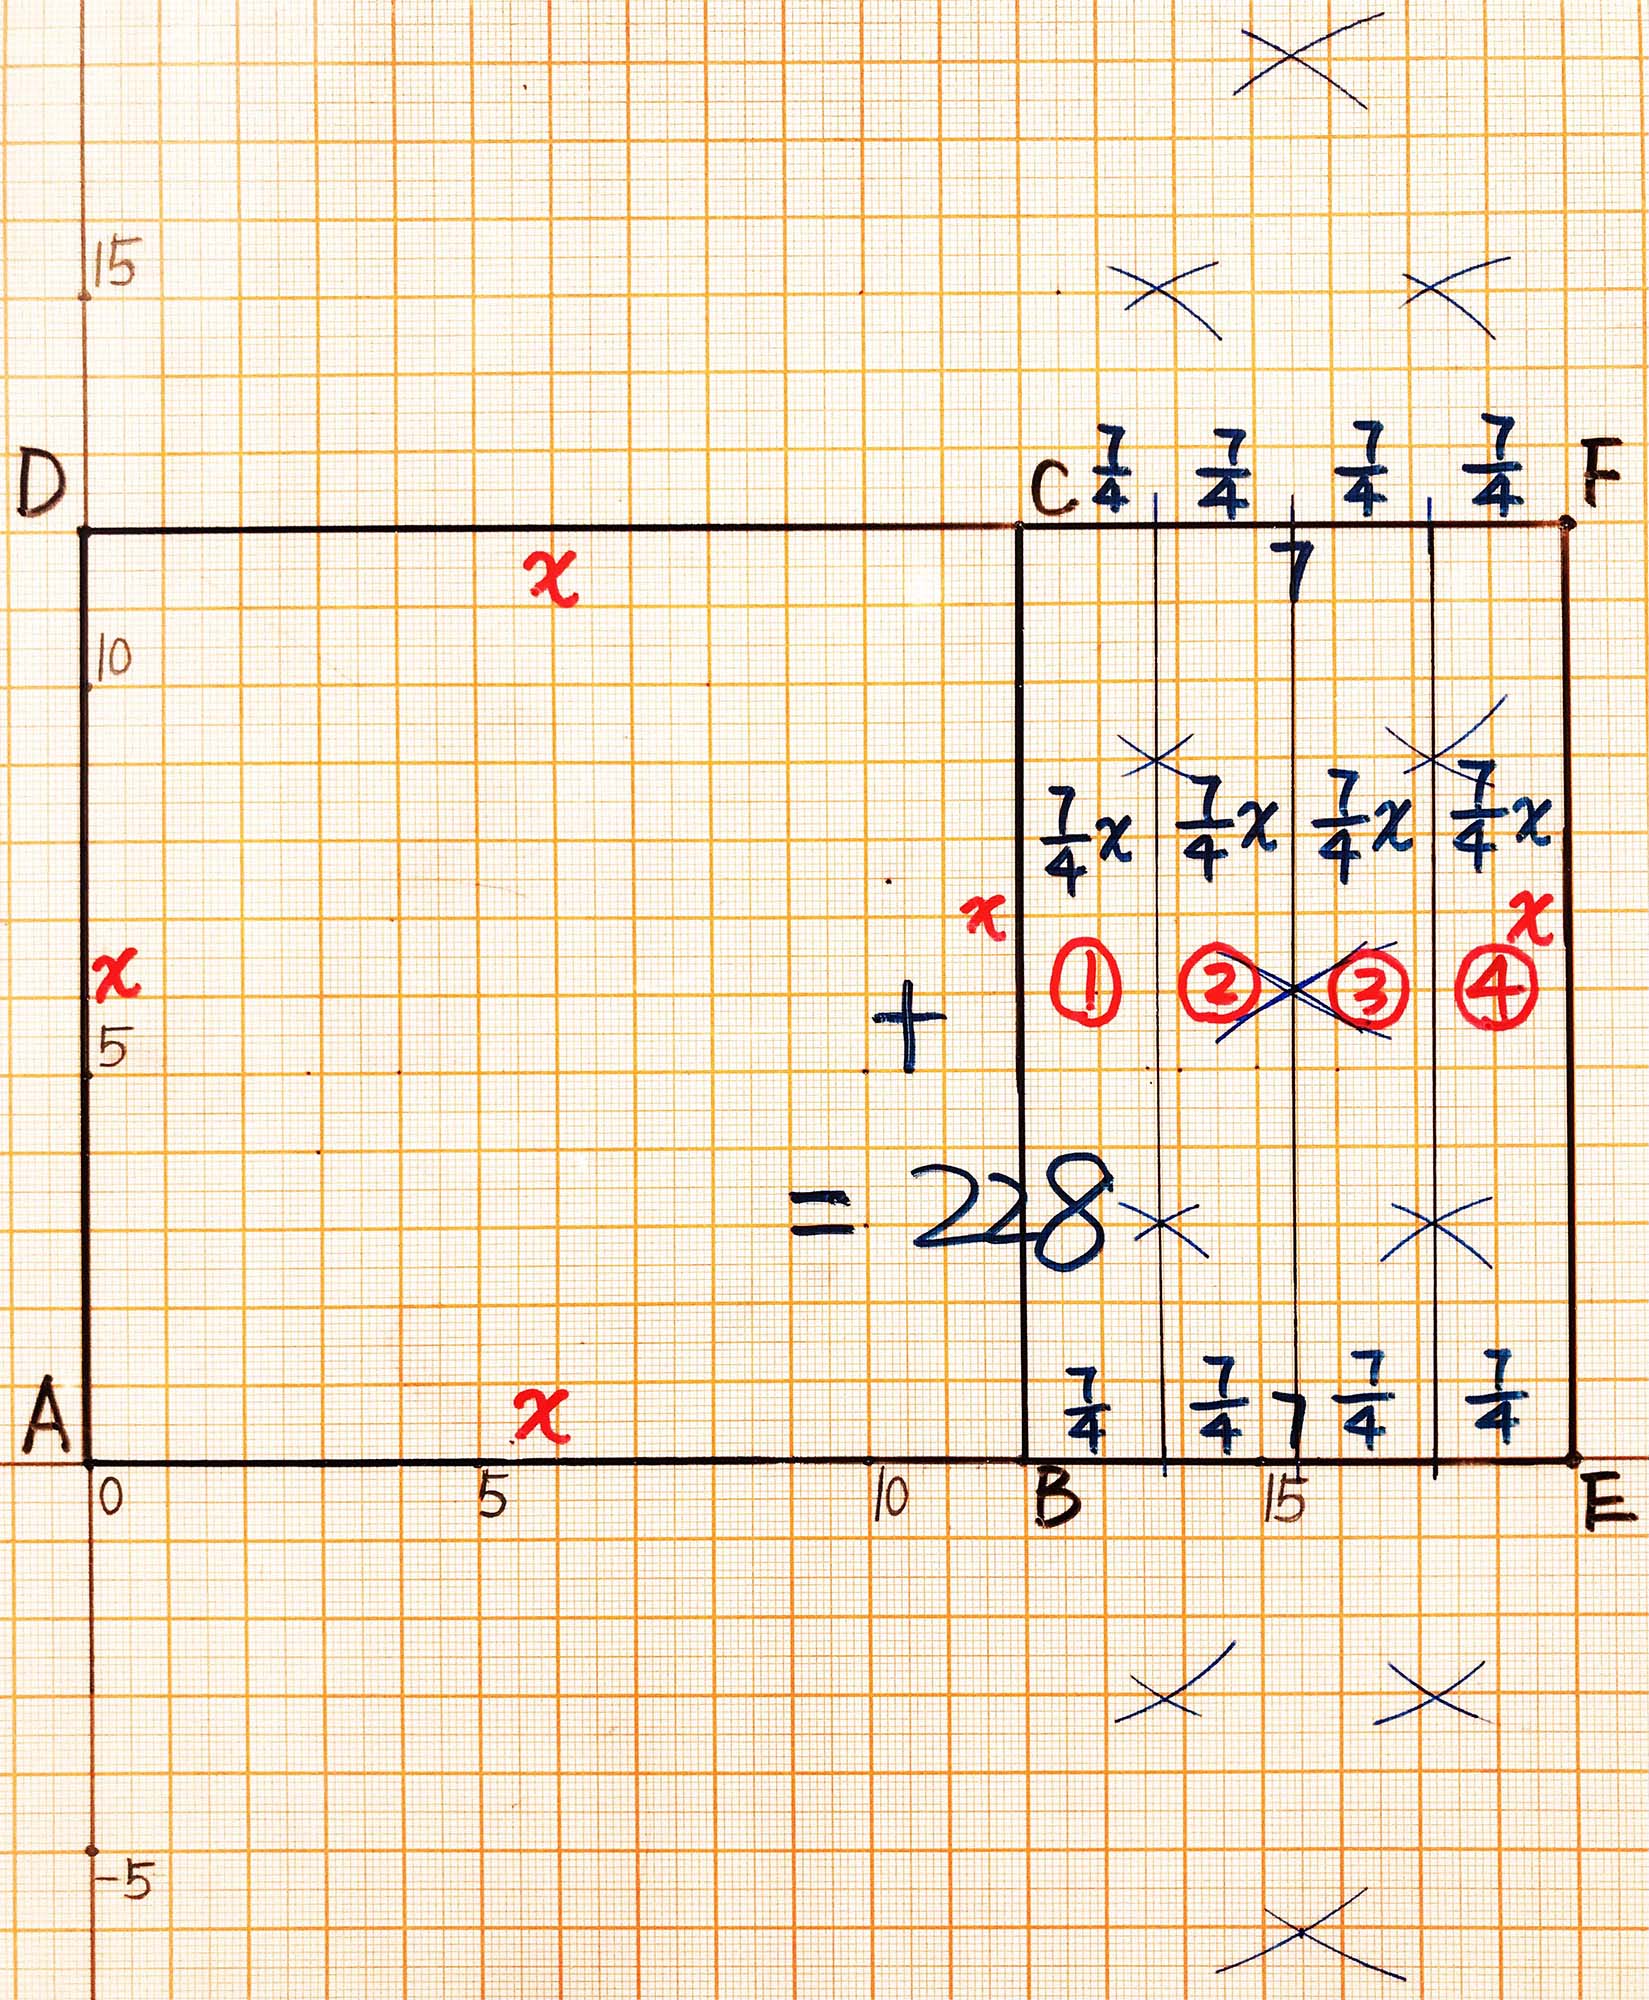 15
D
C 7/4 7/4 7/4 7/4 F
x
7
10
7/4 x 7/4 x 7/4 x 7/4 x
x x
x
① ② ③ ④
+
5
= 228
7/4 7/4 7 7/4 7/4
x
A
0 5 10 B 15 E
-5